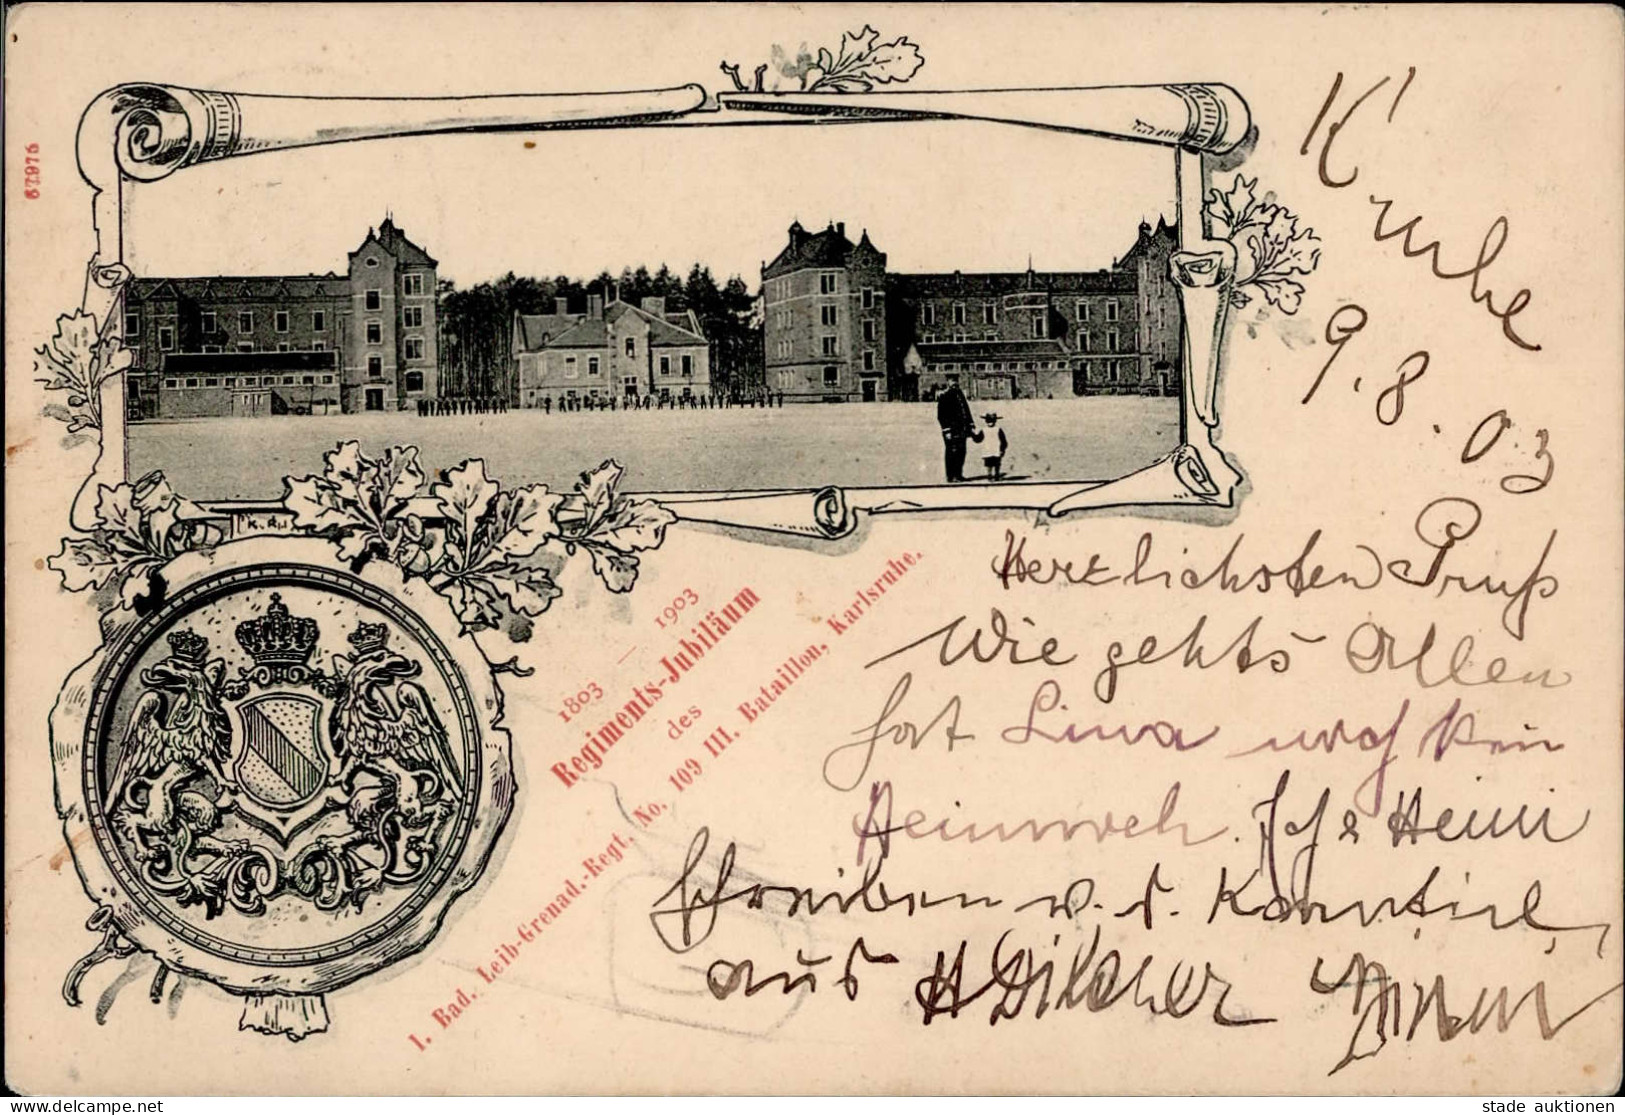 67976
K'ruhe
9.8.03
1803 — 1903
Regiments-Jubiläum
des
1. Bad. Leib-Grenad.-Regt. No. 109 III. Bataillon, Karlsruhe.
Herzlichsten Gruß
Wie gehts Allen
hat Lina noch kein
Heimweh.
Heini
schreiben v. d. Kantine
aus H Dilcher
stade auktionen